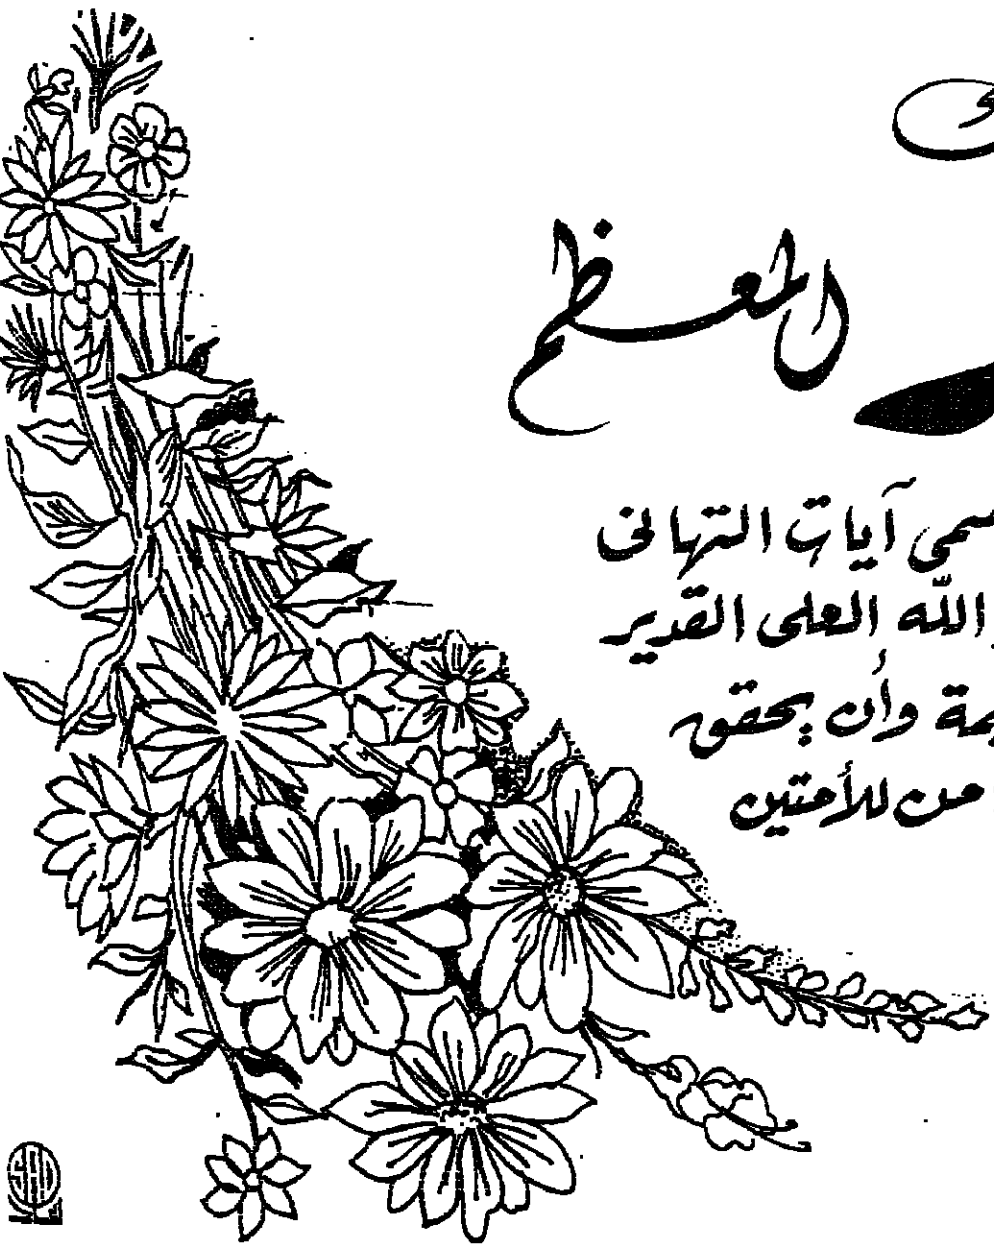 المعظم
آيات التهانى
الله العلى القدير
وأن يحقق
من للأمتين